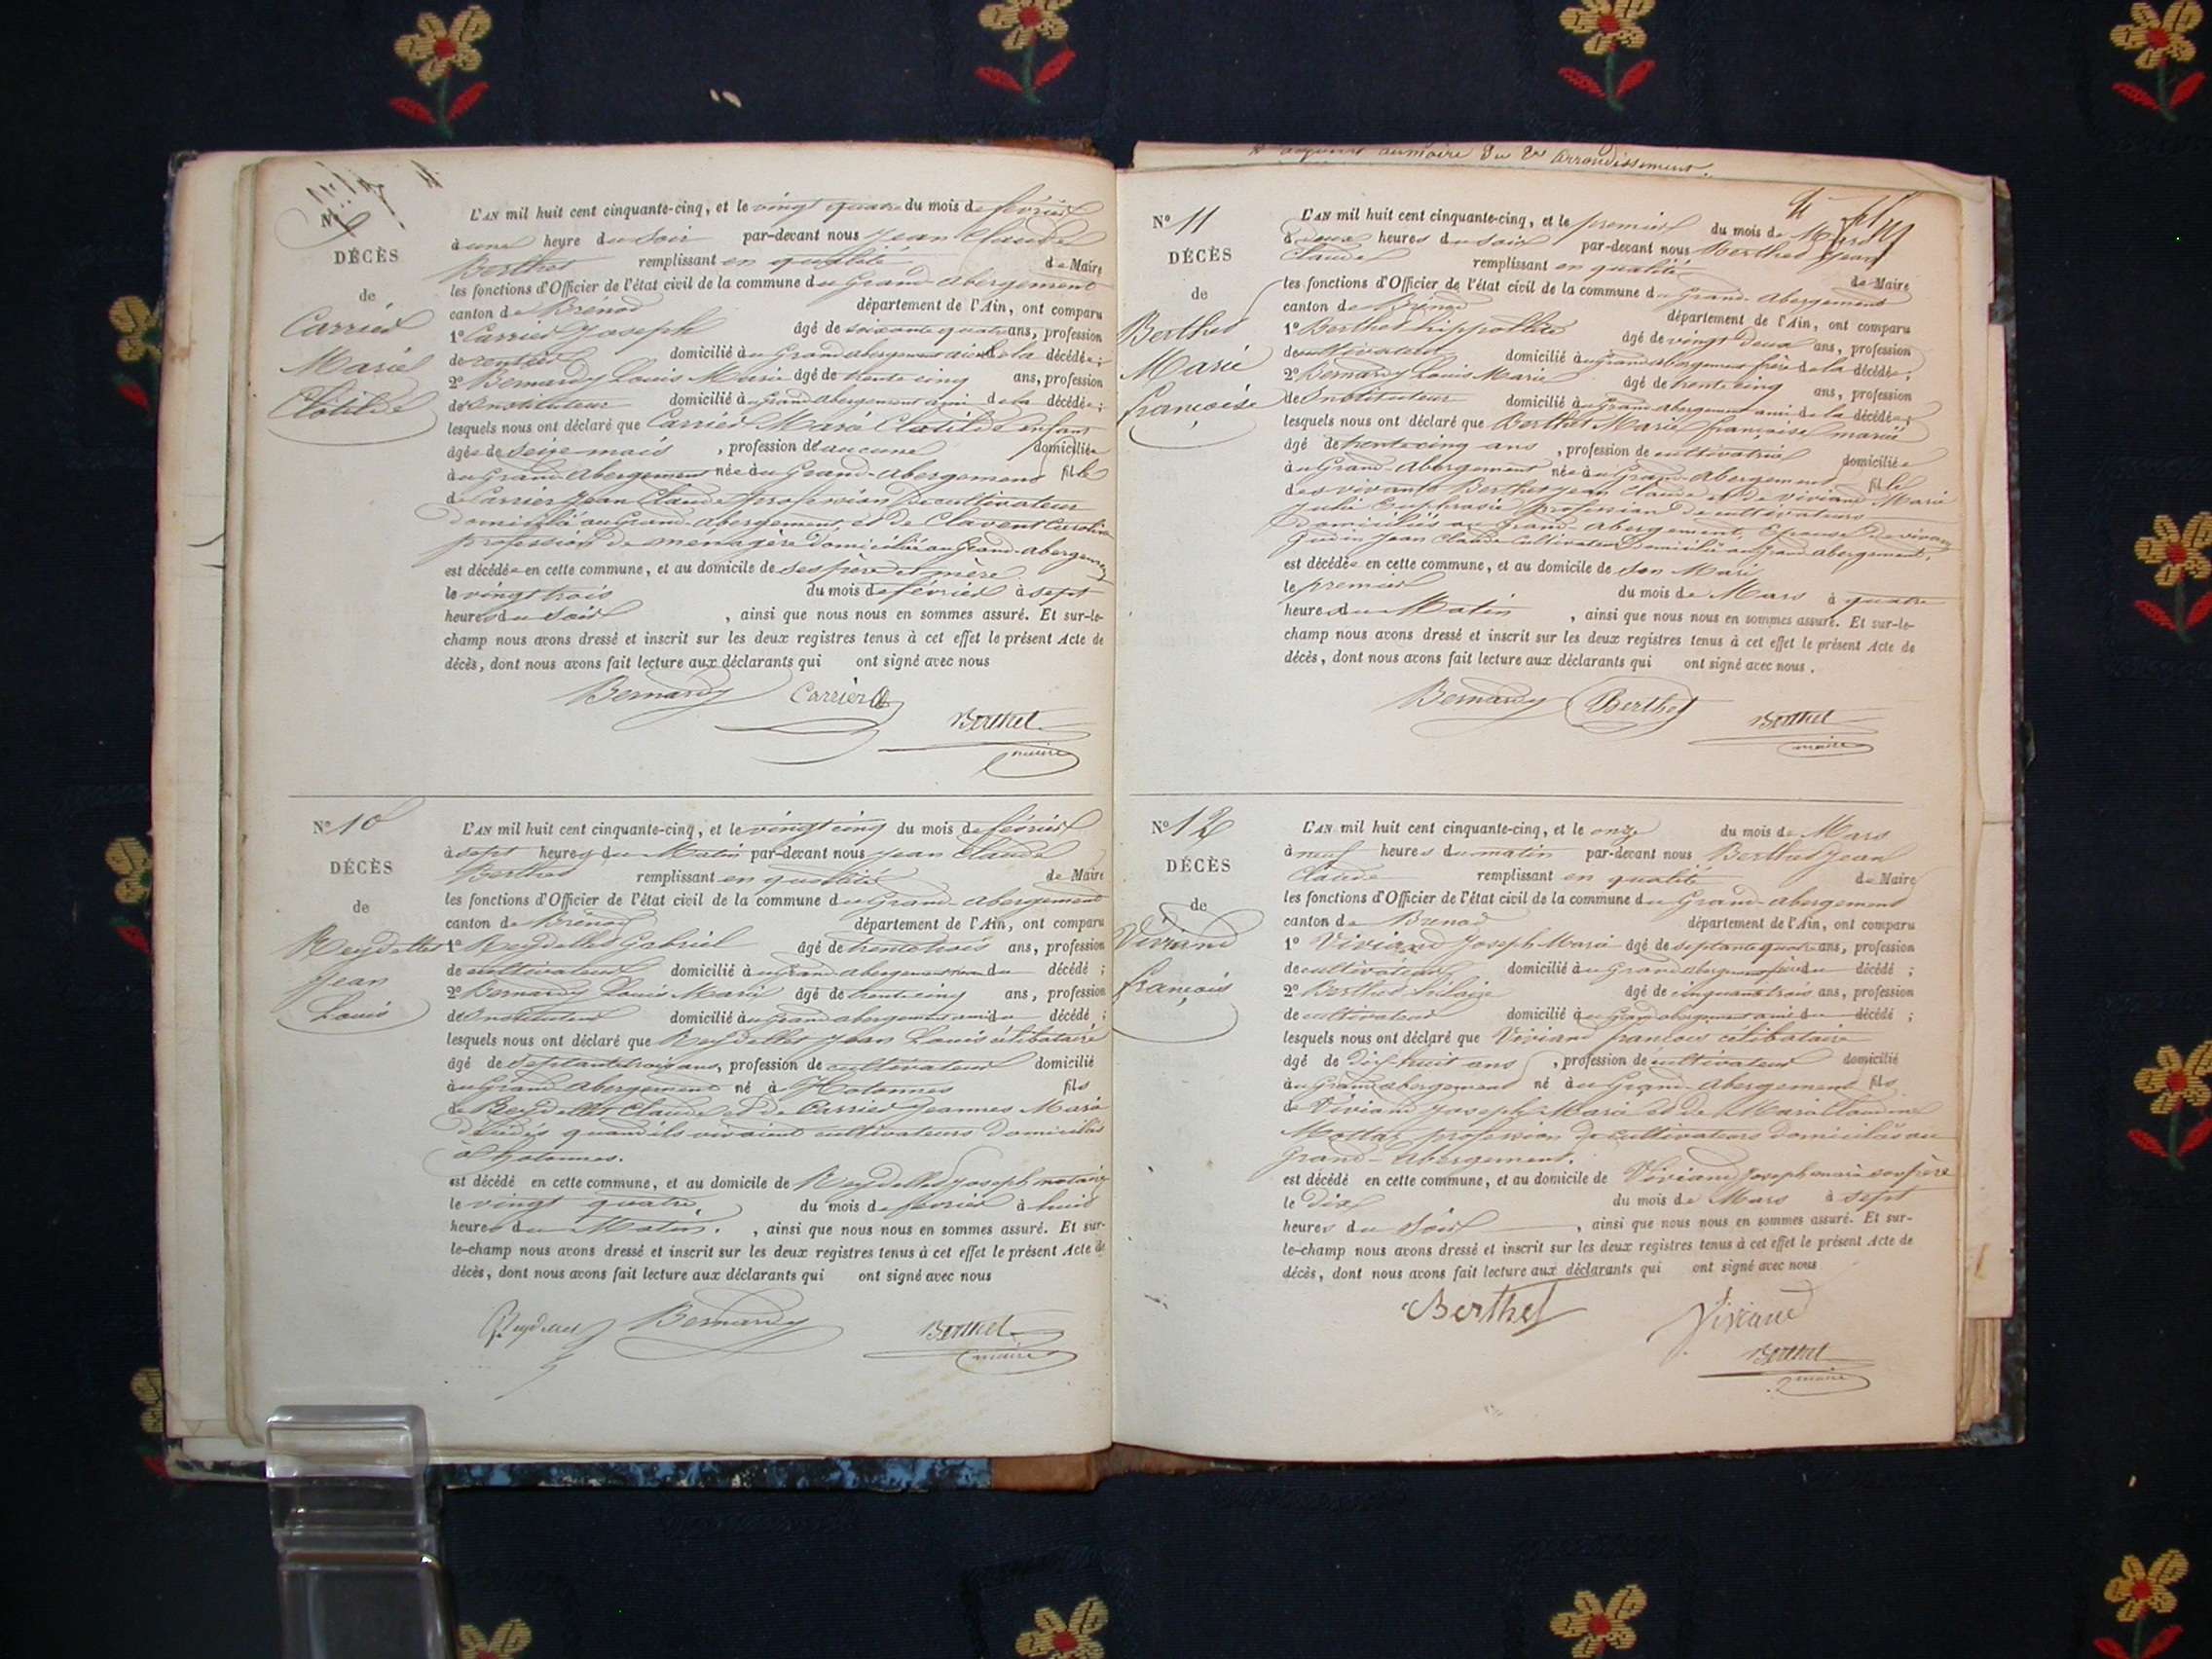 N° 9
DÉCÈS
de
Carrier
Marie
Clotilde
L'AN mil huit cent cinquante-cinq, et le vingt quatre du mois de février
à une heure du soir par-devant nous Jean Claude
Berthet remplissant en qualité de Maire
les fonctions d'Officier de l'état civil de la commune du Grand-Abergement
canton de Brénod département de l'Ain, ont comparu
1° Carrier Joseph âgé de soixante quatre ans, profession
de rentier domicilié au Grand abergement de la décédée;
2° Bernardy Louis Marie âgé de trente cinq ans, profession
de Instituteur domicilié au Grand abergement ami de la décédée;
lesquels nous ont déclaré que Carrier Marie Clotilde enfant
âgée de seize mois, profession de aucune domiciliée
au Grand Abergement née au Grand-Abergement fille
de Carrier Jean Claude profession de cultivateur
domicilié au Grand-Abergement, et de Clavent Caroline
profession de ménagère domiciliée au Grand-abergement
est décédée en cette commune, et au domicile de ses père et mère
le vingt trois du mois de février à sept
heures du soir, ainsi que nous nous en sommes assuré. Et sur-le-
champ nous avons dressé et inscrit sur les deux registres tenus à cet effet le présent Acte de
décès, dont nous avons fait lecture aux déclarants qui ont signé avec nous
Bernardy Carrier
Berthet
maire
N° 10
DÉCÈS
de
Reydellet
Jean
Louis
L'AN mil huit cent cinquante-cinq, et le vingt cinq du mois de février
à sept heures du Matin par-devant nous Jean Claude
Berthet remplissant en qualité de Maire
les fonctions d'Officier de l'état civil de la commune du Grand-Abergement
canton de Brénod département de l'Ain, ont comparu
1° Reydellet Gabriel âgé de trente trois ans, profession
de cultivateur domicilié au Grand abergement du décédé;
2° Bernardy Louis Marie âgé de trente cinq ans, profession
de Instituteur domicilié au Grand abergement ami du décédé;
lesquels nous ont déclaré que Reydellet Jean Louis célibataire
âgé de septante trois ans, profession de cultivateur domicilié
au Grand Abergement né à Hotonnes fils
de Reydellet Claude et de Carrier Jeannes Marie
décédés quand ils vivaient cultivateurs domiciliés
à Hotonnes.
est décédé en cette commune, et au domicile de Reydellet Joseph notaire
le vingt quatre du mois de février à huit
heures du Matin., ainsi que nous nous en sommes assuré. Et sur-
le-champ nous avons dressé et inscrit sur les deux registres tenus à cet effet le présent Acte de
décès, dont nous avons fait lecture aux déclarants qui ont signé avec nous
Reydellet Bernardy Berthet
maire
maire du 2e arrondissement.
N° 11
DÉCÈS
de
Berthet
Marie
françoise
L'AN mil huit cent cinquante-cinq, et le premier du mois de Mars
à deux heures du soir par-devant nous Berthet Jean
Claude remplissant en qualité de Maire
les fonctions d'Officier de l'état civil de la commune du Grand-Abergement
canton de Brénod département de l'Ain, ont comparu
1° Berthet hippollite âgé de vingt deux ans, profession
de cultivateur domicilié au Grand abergement frère de la décédée;
2° Bernardy Louis Marie âgé de trente cinq ans, profession
de Instituteur domicilié au Grand abergement ami de la décédée;
lesquels nous ont déclaré que Berthet Marie françoise mariée
âgé de trente cinq ans, profession de cultivatrice domiciliée
au Grand-Abergement née au Grand-Abergement fille
des vivants Berthet Jean Claude et de Viviand Marie
Julie Euphrasie profession de cultivateurs
domiciliés au Grand Abergement, Epouse de vivant
Jean Claude cultivateur domicilié au Grand abergement,
est décédée en cette commune, et au domicile de son Mari
le premier du mois de Mars à quatre
heures du Matin, ainsi que nous nous en sommes assuré. Et sur-le-
champ nous avons dressé et inscrit sur les deux registres tenus à cet effet le présent Acte de
décès, dont nous avons fait lecture aux déclarants qui ont signé avec nous.
Bernardy Berthet Berthet
maire
N° 12
DÉCÈS
de
Viviand
françois
L'AN mil huit cent cinquante-cinq, et le onze du mois de Mars
à neuf heures du matin par-devant nous Berthet Jean
Claude remplissant en qualité de Maire
les fonctions d'Officier de l'état civil de la commune du Grand-Abergement
canton de Brenod département de l'Ain, ont comparu
1° Viviand Joseph Marie âgé de septante quatre ans, profession
de cultivateur domicilié au Grand abergement père du décédé;
2° Berthet hilaire âgé de cinquante trois ans, profession
de cultivateur domicilié au Grand abergement ami du décédé;
lesquels nous ont déclaré que Viviand françois célibataire
âgé de dix huit ans, profession de cultivateur domicilié
au Grand abergement né au Grand-Abergement fils
de Viviand Joseph Marie et de Marie Claudine
profession de cultivateurs domiciliés au
Grand-Abergement.
est décédé en cette commune, et au domicile de Viviand Joseph marie son père
le dix du mois de Mars à sept
heures du soir, ainsi que nous nous en sommes assuré. Et sur-
le-champ nous avons dressé et inscrit sur les deux registres tenus à cet effet le présent Acte de
décès, dont nous avons fait lecture aux déclarants qui ont signé avec nous
Berthet Viviand
Berthet
maire